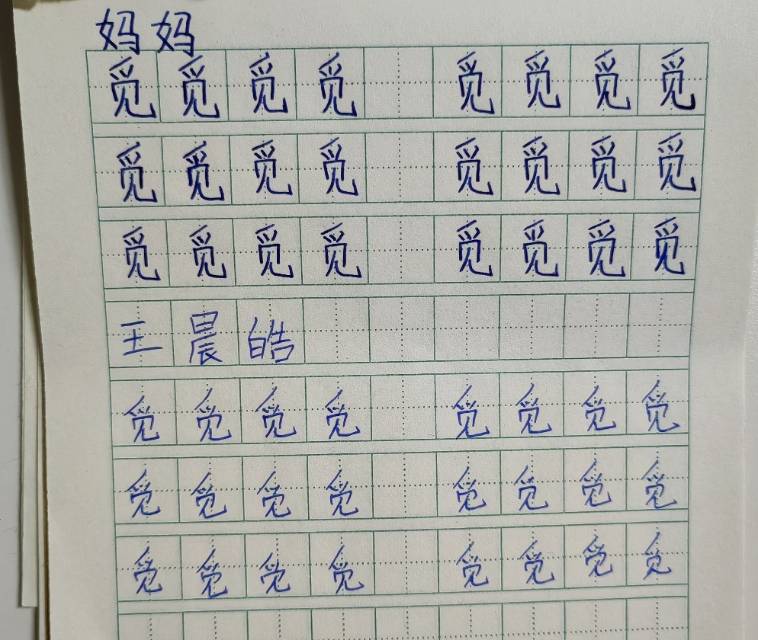 妈妈
觅觅觅觅 觅觅觅觅
觅觅觅觅 觅觅觅觅
觅觅觅觅 觅觅觅觅
王晨皓
觅觅觅觅 觅觅觅觅
觅觅觅觅 觅觅觅觅
觅觅觅觅 觅觅觅觅